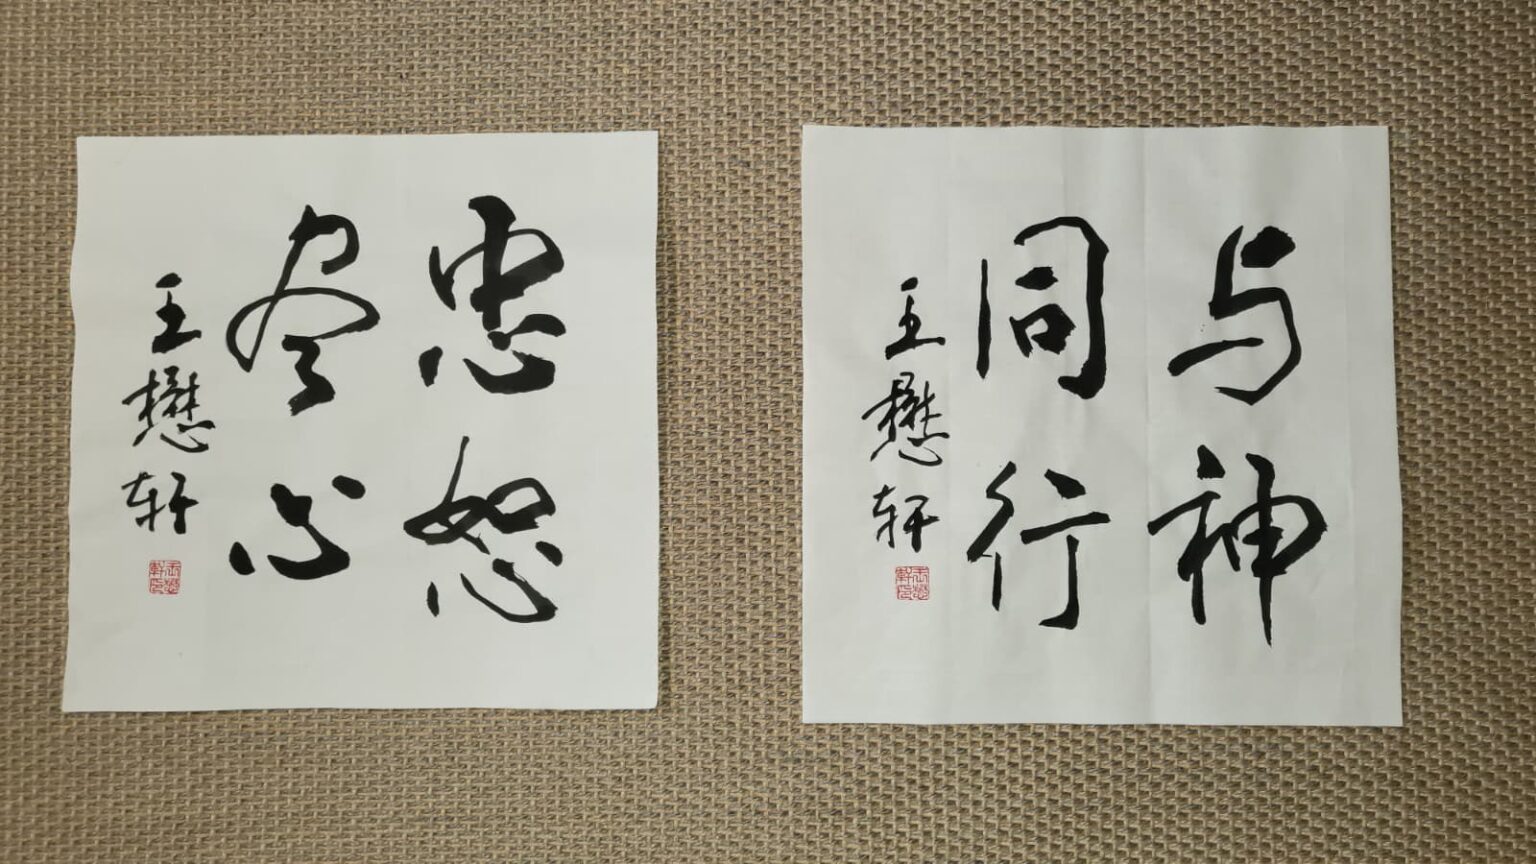 忠恕
尽心
王懋轩
与神
同行
王懋轩